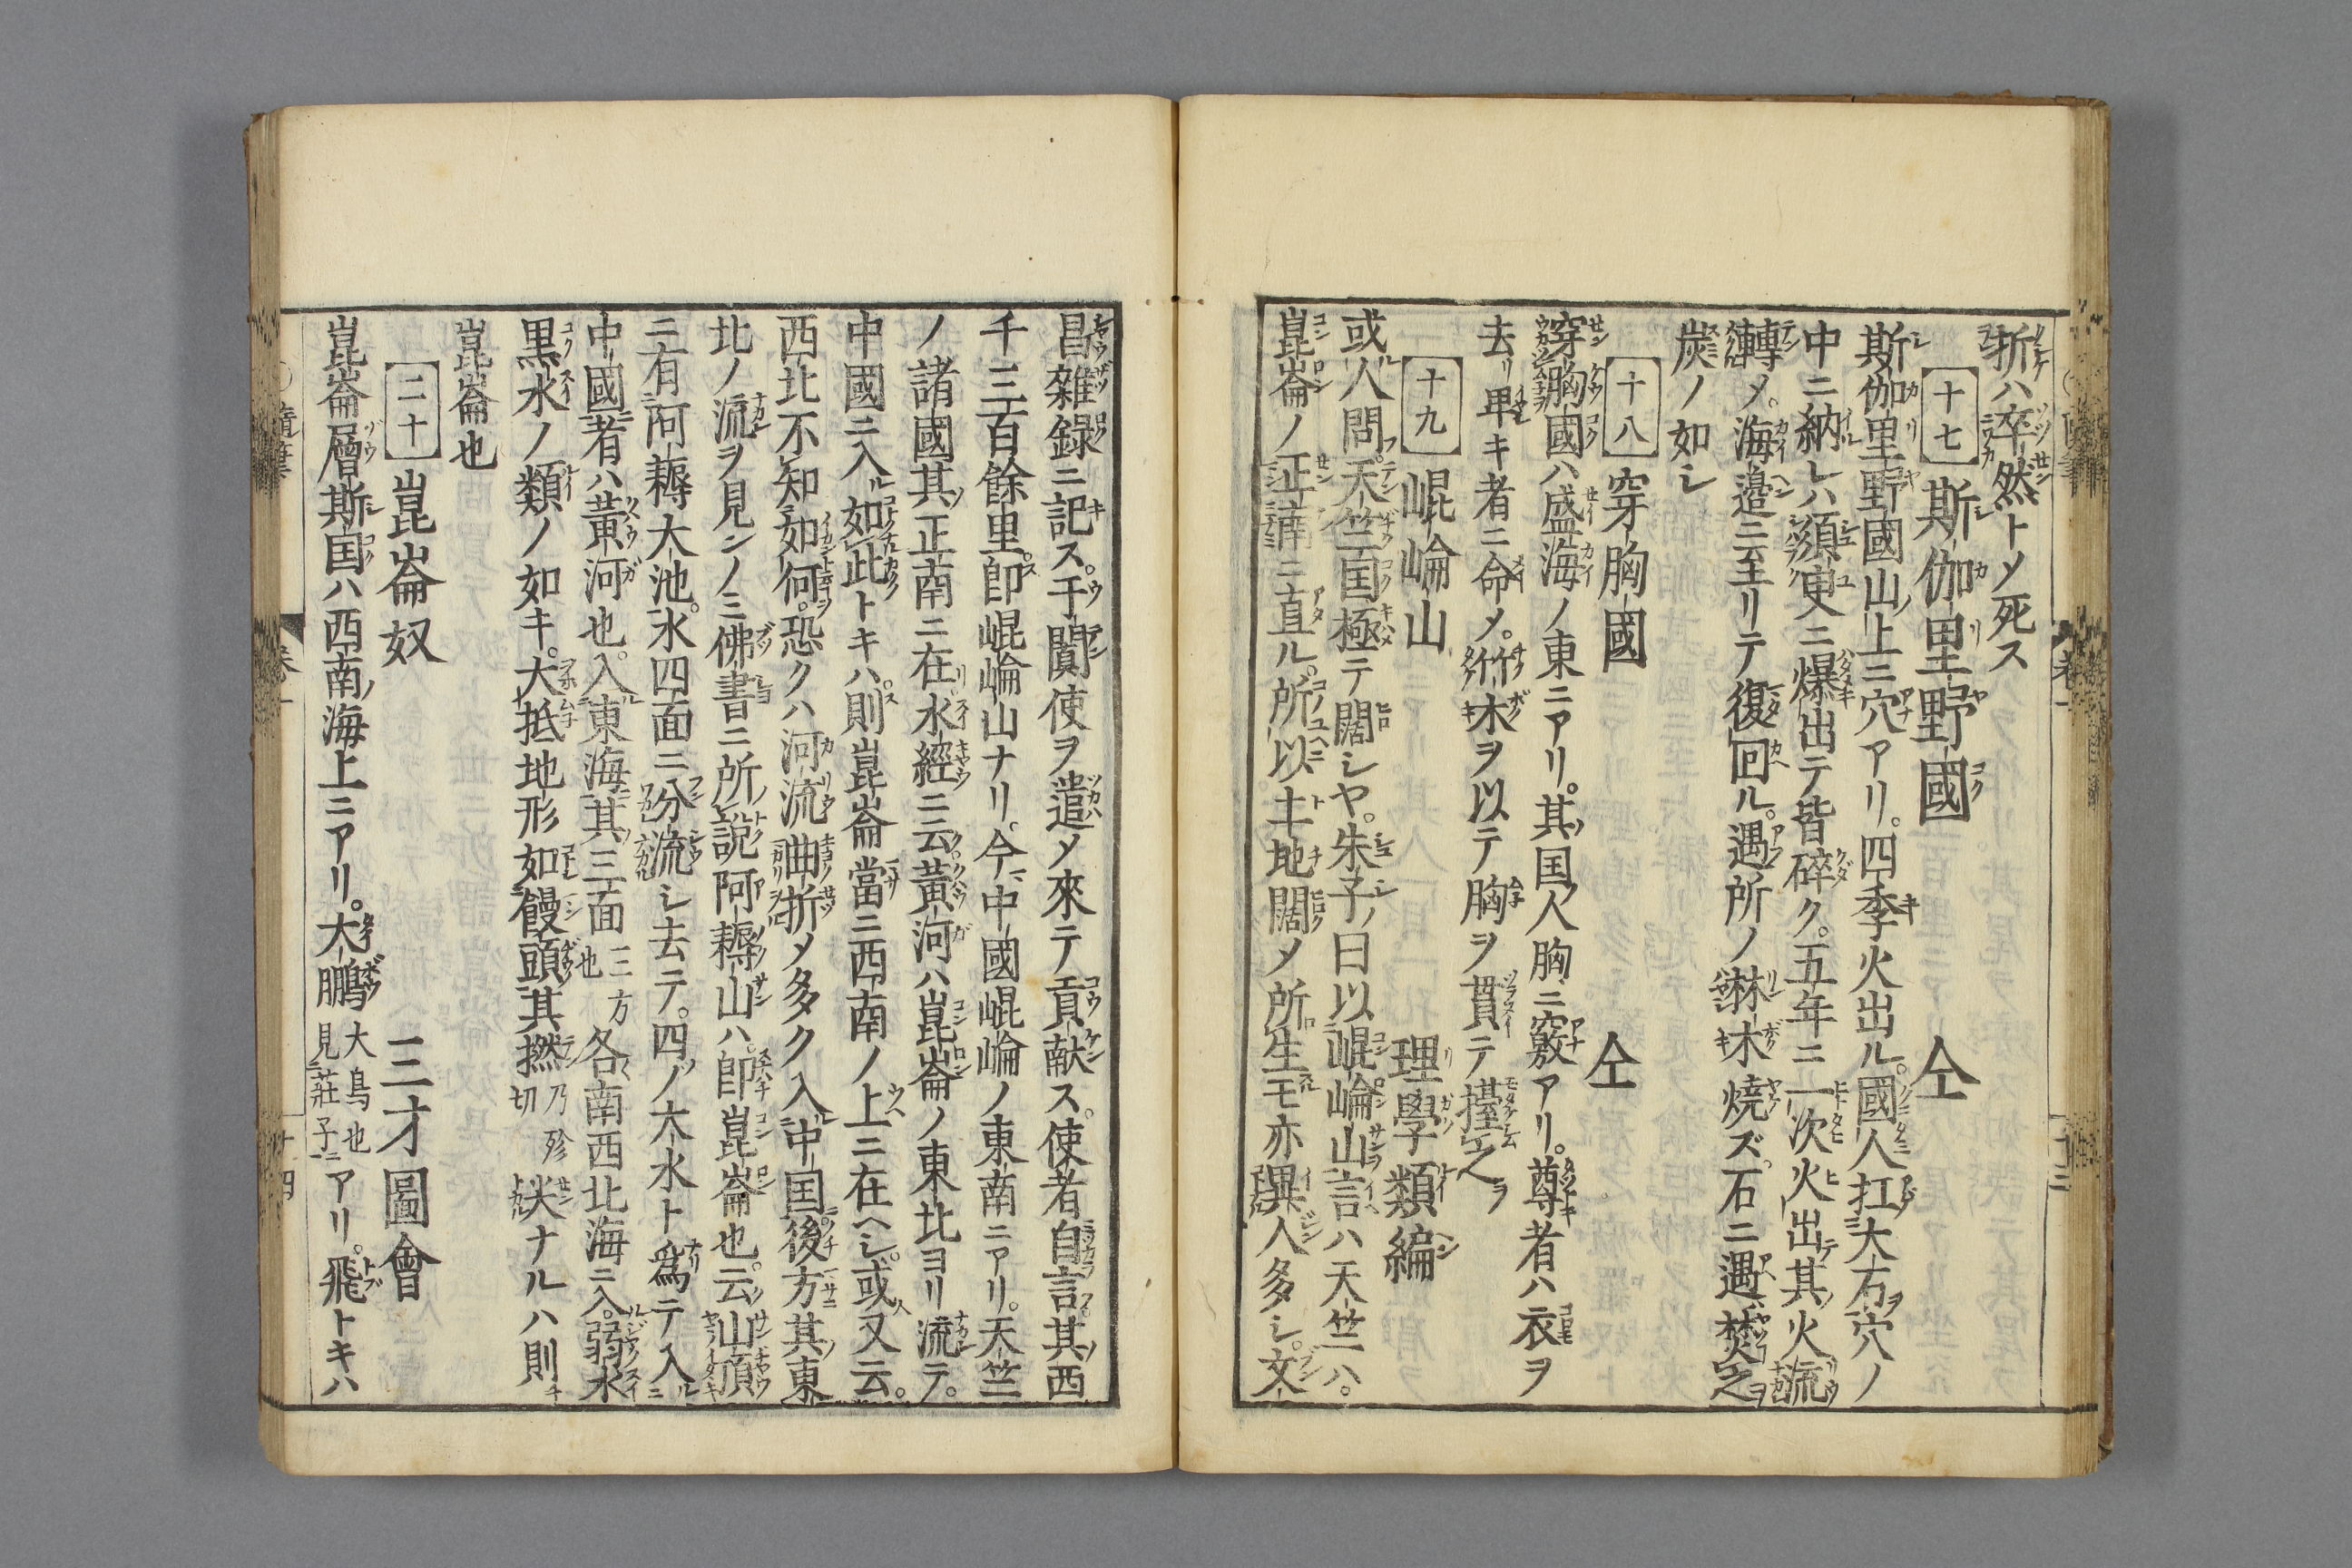 折ハ卒然トメ死ス
[十七]斯伽里野國 仝
斯伽里野國山上ニ穴アリ。四季火出ル。國人扛大石ヲ穴ノ
中ニ納レハ須臾ニ爆出テ皆碎ク。五年ニ一次火出テ其火流
轉メ。海邉ニ至リテ復回ル。遇所ノ淋木燒ズ。石ニ遇ハ焚之ヲ
炭ノ如シ
[十八]穿胸國 仝
穿胸國ハ盛海ノ東ニアリ。其国人胸ニ竅アリ。尊者ハ衣ヲ
去リ卑キ者ニ命メ。竹木ヲ以テ胸ヲ貫テ擡之ヲ
[十九]崐崘山 理學類編
或人問フ。天竺国極テ闊シヤ。朱子ノ曰以崐崘山言ハ天竺ハ。
崑崙ノ正南ニ直ル。所以土地闊メ所生モ亦異人多シ。文
昌雑録ニ記ス。于闐使ヲ遣メ來テ貢献ス。使者自言其西
千三百餘里即崐崘山ナリ。今中國崐崘ノ東南ニアリ。天竺
ノ諸國其正南ニ在水經ニ云黄河ハ崑崙ノ東北ヨリ流テ。
中國ニ入ル如此トキハ。則崑崙當ニ西南ノ上ニ在ヘシ。或又云。
西北不知如何。恐クハ河流曲折メ多ク入中国後方其東
北ノ流ヲ見ンノミ佛書ニ所説阿耨山ハ。即崑崙也。云山頂
ニ有阿耨大池。水四面ニ分流シ去テ。四ノ大水ト爲テ入
中國者ハ黄河也。入東海其三面三方也各南西北海ニ入。弱水
黒水ノ類ノ如キ。大抵地形如饅頭其撚乃殄切尖ナルハ則
崑崙也
[二十]崑崙奴 三才圖會
崑崙層斯国ハ西南ノ海上ニアリ。大鵬大鳥也見莊子ニアリ。飛トキハ